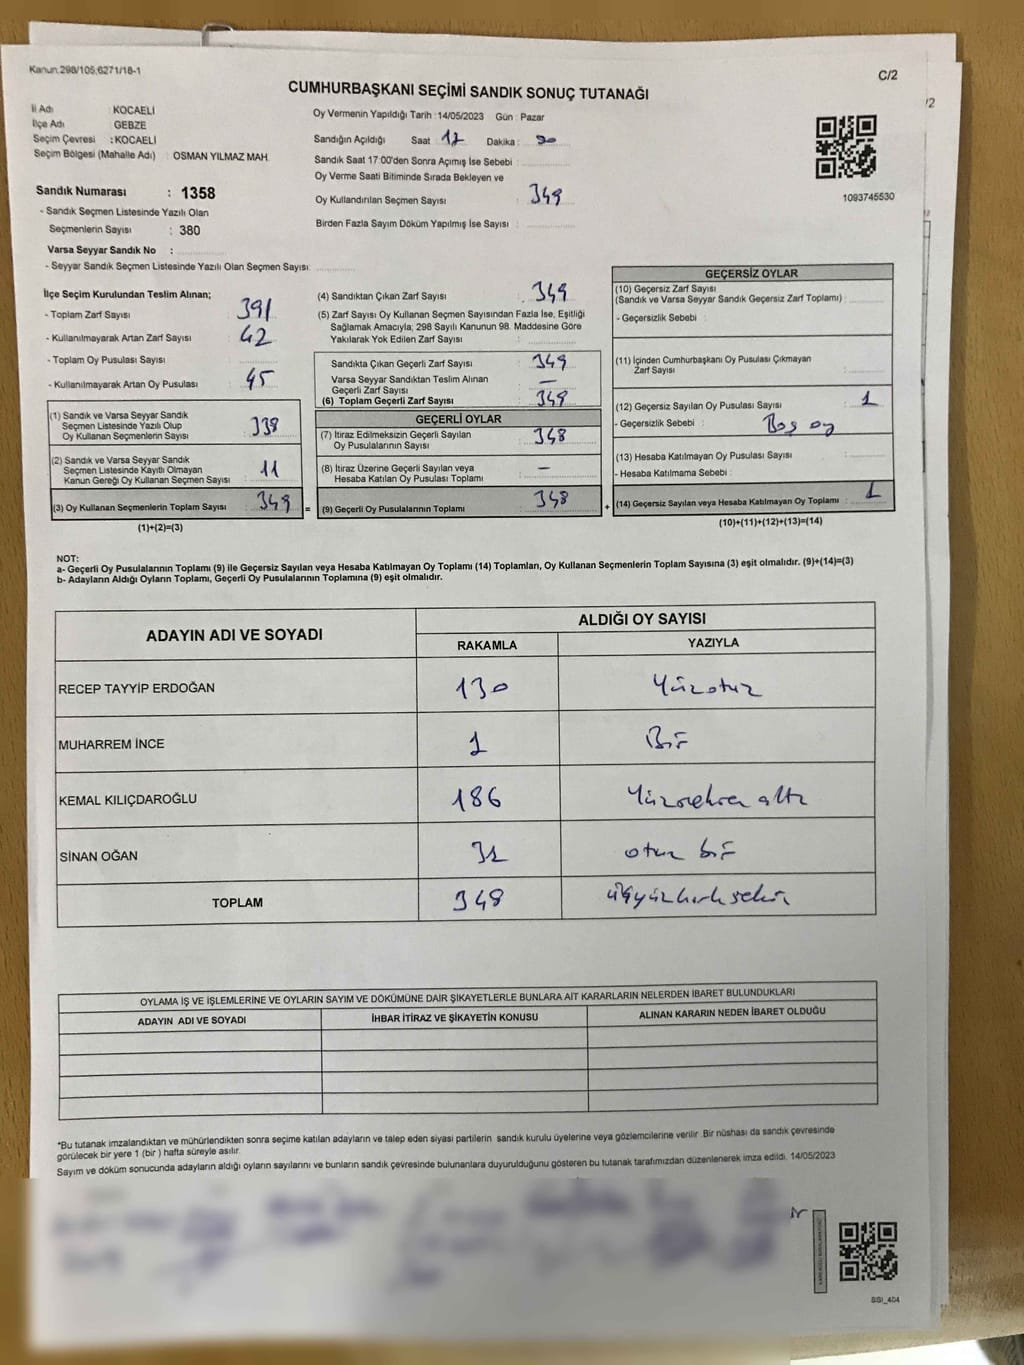 Kanun.298/105;6271/18-1
C/2
/2
CUMHURBAŞKANI SEÇİMİ SANDIK SONUÇ TUTANAĞI
İl Adı : KOCAELİ
İlçe Adı GEBZE
Seçim Çevresi : KOCAELİ
Seçim Bölgesi (Mahalle Adı) : OSMAN YILMAZ MAH.
Oy Vermenin Yapıldığı Tarih : 14/05/2023 Gün : Pazar
Sandığın Açıldığı Saat 17 Dakika :
Sandık Saat 17:00'den Sonra Açımış İse Sebebi :
Oy Verme Saati Bitiminde Sırada Bekleyen ve
Oy Kullandırılan Seçmen Sayısı : 349
Birden Fazla Sayım Döküm Yapılmış İse Sayısı :
1093745530
Sandık Numarası : 1358
- Sandık Seçmen Listesinde Yazılı Olan
Seçmenlerin Sayısı : 380
Varsa Seyyar Sandık No :
- Seyyar Sandık Seçmen Listesinde Yazılı Olan Seçmen Sayısı:
İlçe Seçim Kurulundan Teslim Alınan;
- Toplam Zarf Sayısı : 391
- Kullanılmayarak Artan Zarf Sayısı : 42
- Toplam Oy Pusulası Sayısı :
- Kullanılmayarak Artan Oy Pusulası : 45
(1) Sandık ve Varsa Seyyar Sandık
Seçmen Listesinde Yazılı Olup
Oy Kullanan Seçmenlerin Sayısı : 338
(2) Sandık ve Varsa Seyyar Sandık
Seçmen Listesinde Kayıtlı Olmayan
Kanun Gereği Oy Kullanan Seçmen Sayısı : 11
(3) Oy Kullanan Seçmenlerin Toplam Sayısı : 349
(1)+(2)=(3)
=
(4) Sandıktan Çıkan Zarf Sayısı : 349
(5) Zarf Sayısı Oy Kullanan Seçmen Sayısından Fazla İse, Eşitliği
Sağlamak Amacıyla; 298 Sayılı Kanunun 98. Maddesine Göre
Yakılarak Yok Edilen Zarf Sayısı :
Sandıkta Çıkan Geçerli Zarf Sayısı : 349
Varsa Seyyar Sandıktan Teslim Alınan
Geçerli Zarf Sayısı : —
(6) Toplam Geçerli Zarf Sayısı : 349
GEÇERLİ OYLAR
(7) İtiraz Edilmeksizin Geçerli Sayılan
Oy Pusulalarının Sayısı : 348
(8) İtiraz Üzerine Geçerli Sayılan veya
Hesaba Katılan Oy Pusulası Toplamı : —
(9) Geçerli Oy Pusulalarının Toplamı : 348
+
GEÇERSİZ OYLAR
(10) Geçersiz Zarf Sayısı
(Sandık ve Varsa Seyyar Sandık Geçersiz Zarf Toplamı) :
- Geçersizlik Sebebi :
(11) İçinden Cumhurbaşkanı Oy Pusulası Çıkmayan
Zarf Sayısı :
(12) Geçersiz Sayılan Oy Pusulası Sayısı : 1
- Geçersizlik Sebebi : Boş oy
(13) Hesaba Katılmayan Oy Pusulası Sayısı :
- Hesaba Katılmama Sebebi :
(14) Geçersiz Sayılan veya Hesaba Katılmayan Oy Toplamı : 1
(10)+(11)+(12)+(13)=(14)
NOT:
a- Geçerli Oy Pusulalarının Toplamı (9) ile Geçersiz Sayılan veya Hesaba Katılmayan Oy Toplamı (14) Toplamları, Oy Kullanan Seçmenlerin Toplam Sayısına (3) eşit olmalıdır. (9)+(14)=(3)
b- Adayların Aldığı Oyların Toplamı, Geçerli Oy Pusulalarının Toplamına (9) eşit olmalıdır.
ADAYIN ADI VE SOYADI
ALDIĞI OY SAYISI
RAKAMLA YAZIYLA
RECEP TAYYİP ERDOĞAN 130 Yüzotuz
MUHARREM İNCE 1 Bir
KEMAL KILIÇDAROĞLU 186 Yüzseksen altı
SİNAN OĞAN 31 otuz bir
TOPLAM 348 üçyüzkırksekiz
OYLAMA İŞ VE İŞLEMLERİNE VE OYLARIN SAYIM VE DÖKÜMÜNE DAİR ŞİKAYETLERLE BUNLARA AİT KARARLARIN NELERDEN İBARET BULUNDUKLARI
ADAYIN ADI VE SOYADI İHBAR İTİRAZ VE ŞİKAYETİN KONUSU ALINAN KARARIN NEDEN İBARET OLDUĞU
*Bu tutanak imzalandıktan ve mühürlendikten sonra seçime katılan adayların ve talep eden siyasi partilerin sandık kurulu üyelerine veya gözlemcilerine verilir. Bir nüshası da sandık çevresinde
görülecek bir yere 1 (bir ) hafta süreyle asılır.
Sayım ve döküm sonucunda adayların aldığı oyların sayılarını ve bunların sandık çevresinde bulunanlara duyurulduğunu gösteren bu tutanak tarafımızdan düzenlenerek imza edildi. 14/05/2023
SSI_404